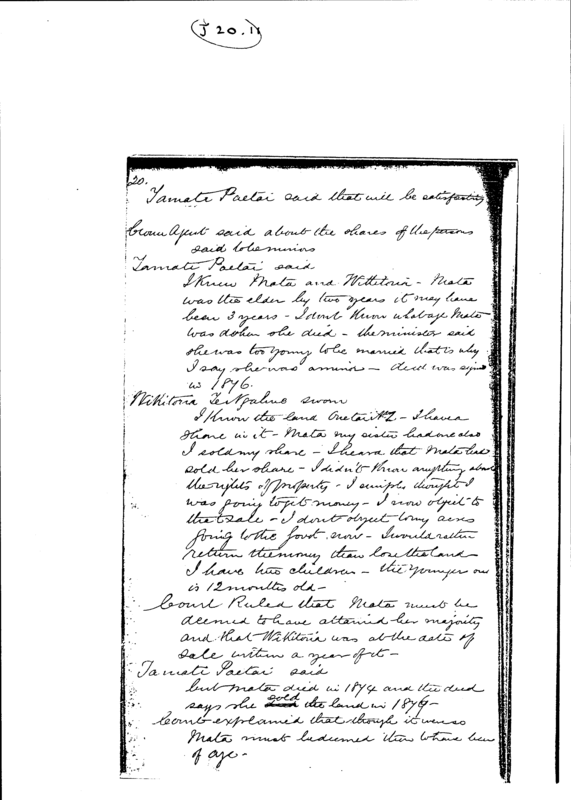 J 20. 11
20.
Tamati Paetai said that will be satisfactory
Crown Agent said about the shares of the persons
said to be minors
Tamati Paetai said
I knew Mata and Wikitoria - Mata
was the elder by two years it may have
been 3 years - I don't know what age Mata
was when she died - the minister said
she was too young to be married that is why
I say she was a minor - deed was signed
in 1876.
Wikitoria Te Ngahue sworn
I know the land - I have a
share in it - Mata my sister had one also
I sold my share - I heard that Mata had
sold her share - I didn't know anything about
the rights of property - I simply thought I
was going to get money - I now object to
that sale - I dont object to my acres
going to the Govt. now - I would rather
return the money than lose the land
I have two children - the younger one
is 12 months old -
Court Ruled that Mata must be
deemed to have attained her majority
and that Wikitoria was at the date of
sale within a year of it -
Tamati Paetai said
but Mata died in 1874 and the deed
says she sold the land in 1876 -
Court explained that though it was so
Mata must be deemed then to have been
of age -